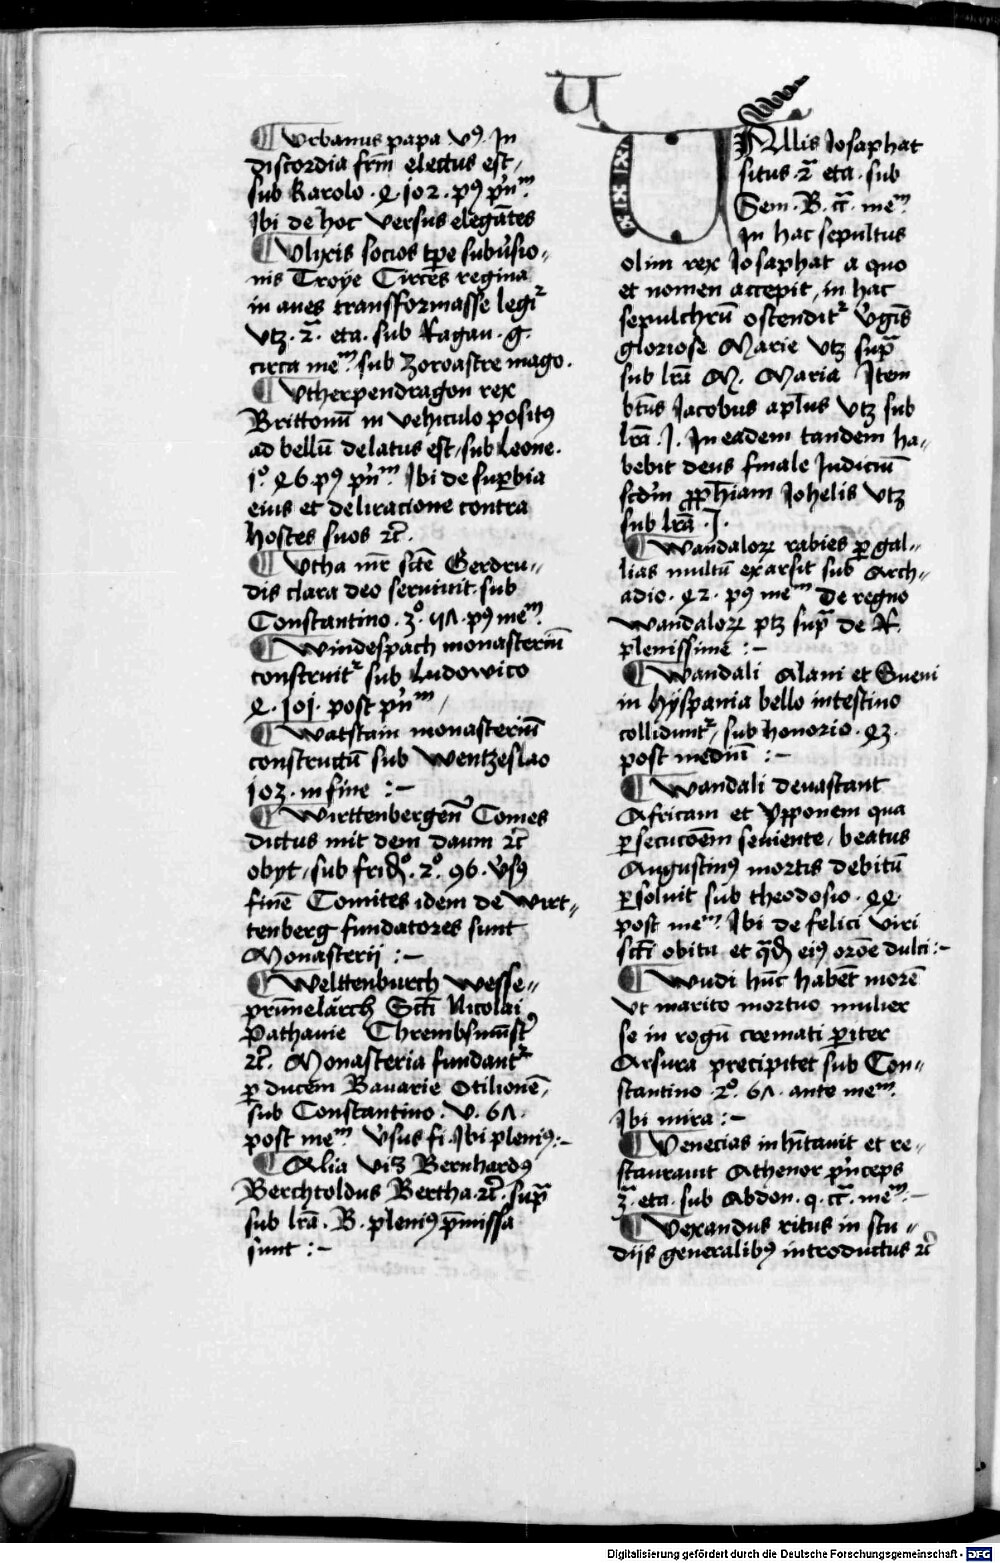 U
¶ Urbanus papa vꝰ. In
discordia frm̄ electus est,
sub Karolo. 4. 102. pꝰ pn̄m.
Ibi de hoc versus elegātes
¶ Ulyxis socios tꝑe subūsio-
nis Troye Circēs regina
in aues transfformasse legit᷑
vtꝫ. 2ā. eta. sub Ragau. g.
circa mem. sub Zoroastre mago.
¶ Utherpendragon rex
Brittonū in vehiculo positꝰ
ad bellū delatus est, sub Leone.
1º 46. pꝰ pn̄m. Ibi de suꝑbia
eius et deliracione contra
hostes suos ⁊c̄.
¶ Utha mr̄ sctē Gerdru-
dis clara deo seruiuit. sub
Constantino. 3º. 57. pꝰ mem.
¶ Windespach monasteriū
construit᷑ sub Ludowico
4. 101. post pn̄m,
¶ Watstain monasteriū
constructū sub Wentzeslao
103. in fine :-
¶ Wirttenbergen̄ Comes
dictus mit dem daum ⁊c̄
obyt, sub frid̄. 2º. 96. v̄sꝰ
finē Comites idem de Wirt-
tenberg fundatores sunt
Monasterij :-
¶ Welttenburch Wesse-
prūnelärch Sctī Nicolai
Pathauie Chrembsmūst̄
⁊c̄. Monasteria fundant᷑
ꝑ ducem Bauarie Otilionē,
sub Constantino. v. 67.
post mem. v̄sus fi. Ibi pleniꝰ:-
¶ Alia viꝫ Bernhardꝰ
Berchtoldus Bertha. ⁊c̄. sup̄a
sub lr̄a. B. pleniꝰ p̄missa
sunt :-
VAllis Iosaphat
situs. 2ā eta. sub
Sem. B. cc̄. mem.
In hac sepultus
olim rex Iosaphat a quo
et nomen accepit, in hac
sepulchrū ostendit᷑ v̄gīs
gloriose Marie vtꝫ sup̄a
sub lr̄a M. Maria Item
btūs Iacobus aplūs vtꝫ sub
lr̄a. I. In eadem tandem ha-
bebit deus finale Iudiciū
scd̄m ꝓph̄iam Iohelis vtꝫ
sub lr̄a. I.
¶ Wandaloꝝ rabies ꝑ gal-
lias multū exarsit sub Arch-
adio. 42. pꝰ mem De regno
Wandaloꝝ ptꝫ sup̄ de R.
plenissime :-
¶ Wandali Alani et Sueui
in Hyspania bello intestino
collidunt᷑, sub honorio. 43.
post mediū :-
¶ Wandali deuastant
Africam et Ypponem qua
ꝑsecucōem seuiente, beatus
Augustinꝰ mortis debitū
ꝑsoluit sub theodosio. 44.
post mem. Ibi de felici viri
sctī obitu et q̄d̄ eiꝰ orōe dulci:-
¶ Wudi hūc habēt morē
vt marito mortuo mulier
se in rogū cremati ꝑiter
Arsura precipitet sub Con-
stantino. 2º. 67. ante mem.
Ibi mira :-
¶ Venecias inhītauit et re-
staurauit Athenor pn̄ceps
3ā. eta. sub Abdon. q. cc̄. mem.-
¶ Vexandus ritus in stu-
dijs generalibꝰ introductus ⁊c̄
Digitalisierung gefördert durch die Deutsche Forschungsgemeinschaft - DFG